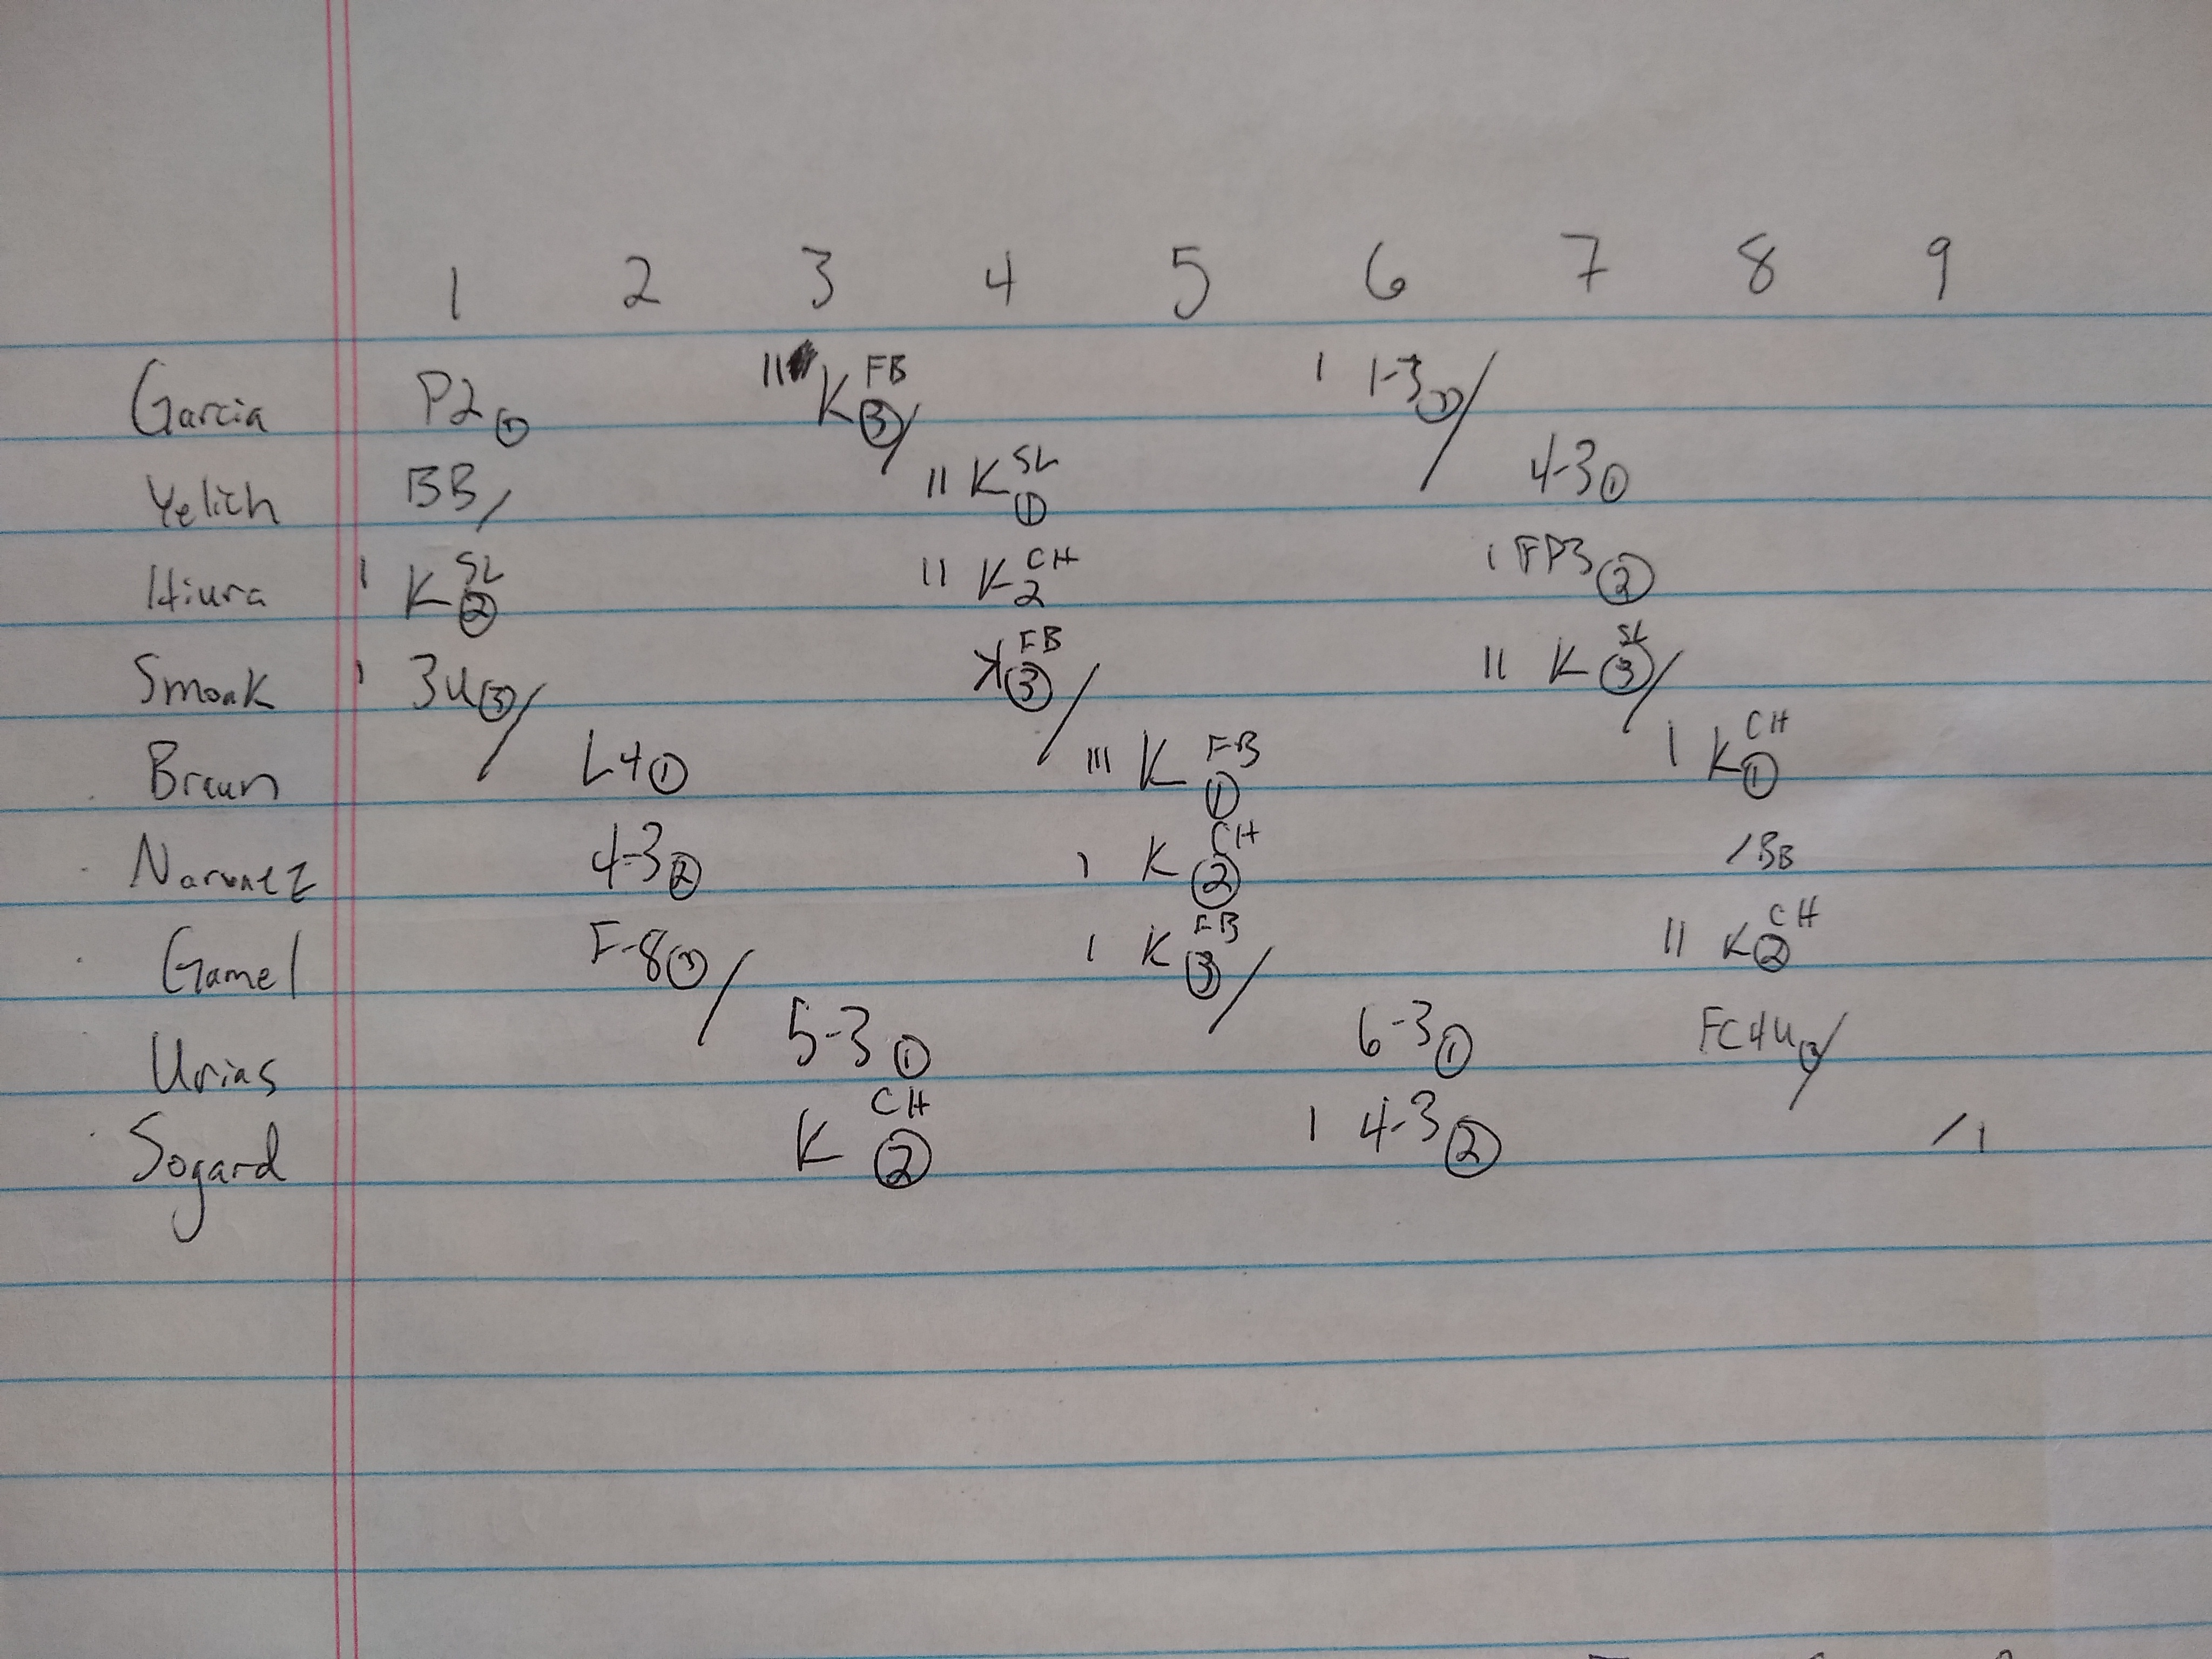 1 2 3 4 5 6 7 8 9
Garcia P2 ① II K FB ③ / I 1-3 ③ /
Yelich BB / II K SL ① 4-3 ①
Hiura I K SL ② II K CH 2 I FP3 ②
Smoak I 3U ③ / ꓘ FB ③ / II K SL ③ /
Braun L4 ① III K FB ① I K CH ①
Narvaez 4-3 ② I K CH ② / BB
Gamel F-8 ③ / I K FB ③ / II K CH ②
Urias 5-3 ① 6-3 ① FC4U ③ /
Sogard K CH ② I 4-3 ② / I